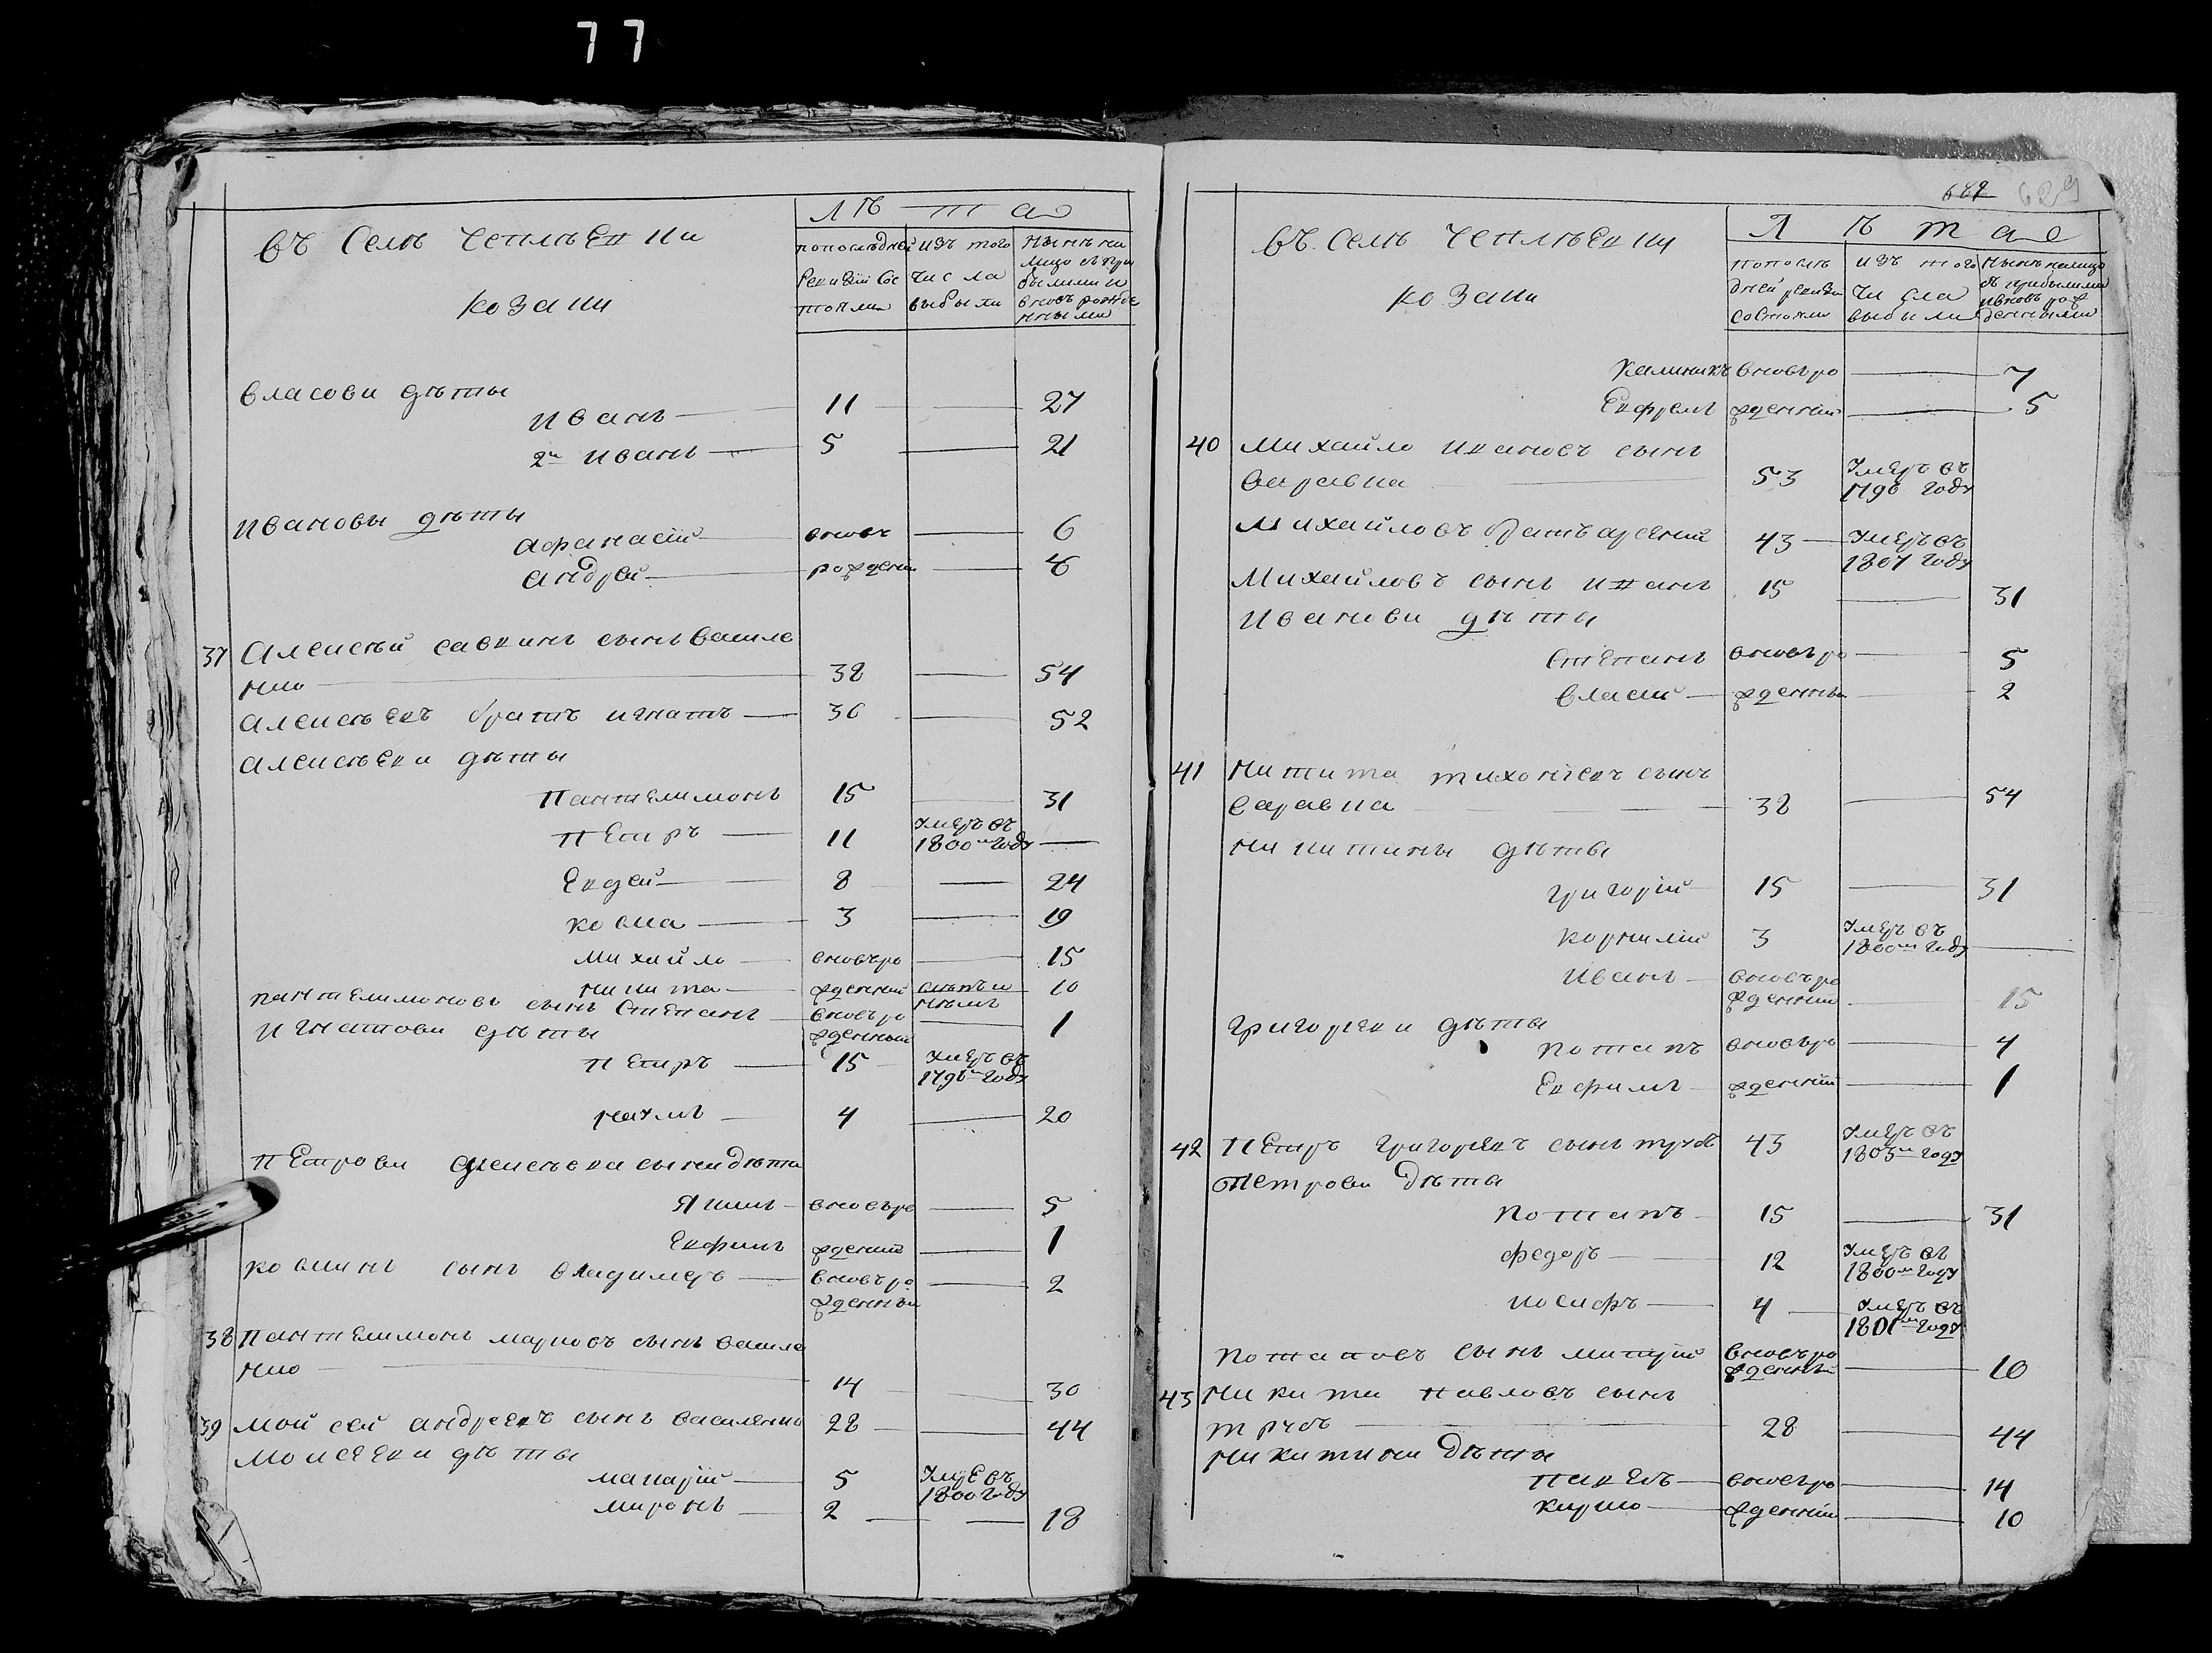 77
въ Селѣ Чеплѣевки
козаки
Лѣта
попоследней ревизии состояли
изъ того числа выбыли
Нынѣ на лицо съ прибылими и вновь рожденными
Власови дѣты
Иванъ 11 27
2й Иванъ 5 21
Ивановы дѣты
Афанасій вновь 6
Андрей рожденн
37 Алексѣй савкинъ сынъ Василе
нко 38 54
Алексѣевъ братъ игнатъ 36 52
Алексѣеви дѣты
Пантелимонъ 15 31
Петръ 11 Умеръ въ 1800м Году
Евдей 8 24
козма 3 19
Михайло вновъро 15
никита жденній 10
пантелимоновъ сынъ Степанъ вновъро жденный 1
Игнатови дѣты
Петръ 15 Умеръ въ 179 Году
наумъ 4 20
Петрови дѣты
Якимъ вновъро 5
Евфимъ жденній 1
козминъ сынъ Владимеръ вновъро жденный 2
38 Пантелимонъ марковъ сынъ Василе
нко 14 30
39 Мойсей андреевъ сынъ Василенко 28 44
Моисееви дѣты
макарій 5 Умре въ 1800 Году
миронъ 2 18
629
въ Селѣ Чеплѣевки
козаки
Лѣта
попослѣдней ревизи состояли
изъ того числа выбыли
Нынѣ налицо съ прибылими ивновъ рожденными
Калиникъ вновъро 7
Евфремъ жденній 5
40 Михайло ивановъ сынъ
Саравка 53 Умеръ въ 179 Году
Михайловъ братъ арсеній 43 Умеръ въ 1807 Году
Михайловъ сынъ иванъ 15 31
Иванови дѣты
Степанъ вновъро 5
Власій жденны 2
41 Никита тихоновъ сынъ
Саравка 38 54
Никитины дѣты
григорій 15 31
корнилій 3 Умеръ въ 1800м Году
Иванъ вновъро жденній 15
григореви дѣты
Потапъ вновъро 4
Евфимъ жденній 1
42 Петръ григоревъ сынъ трубъ 43 Умеръ въ 1803м Году
Петрови дѣты
Потапъ 15 31
федоръ 12 Умеръ въ 1800м Году
иосифъ 4 Умеръ въ 1801м Году
Потаповъ сынъ митрій вновъро жденній 10
43 Никита павловъ сынъ
трубъ 28 44
Никитини дѣты
павелъ вновъро 14
кирило жденній 10